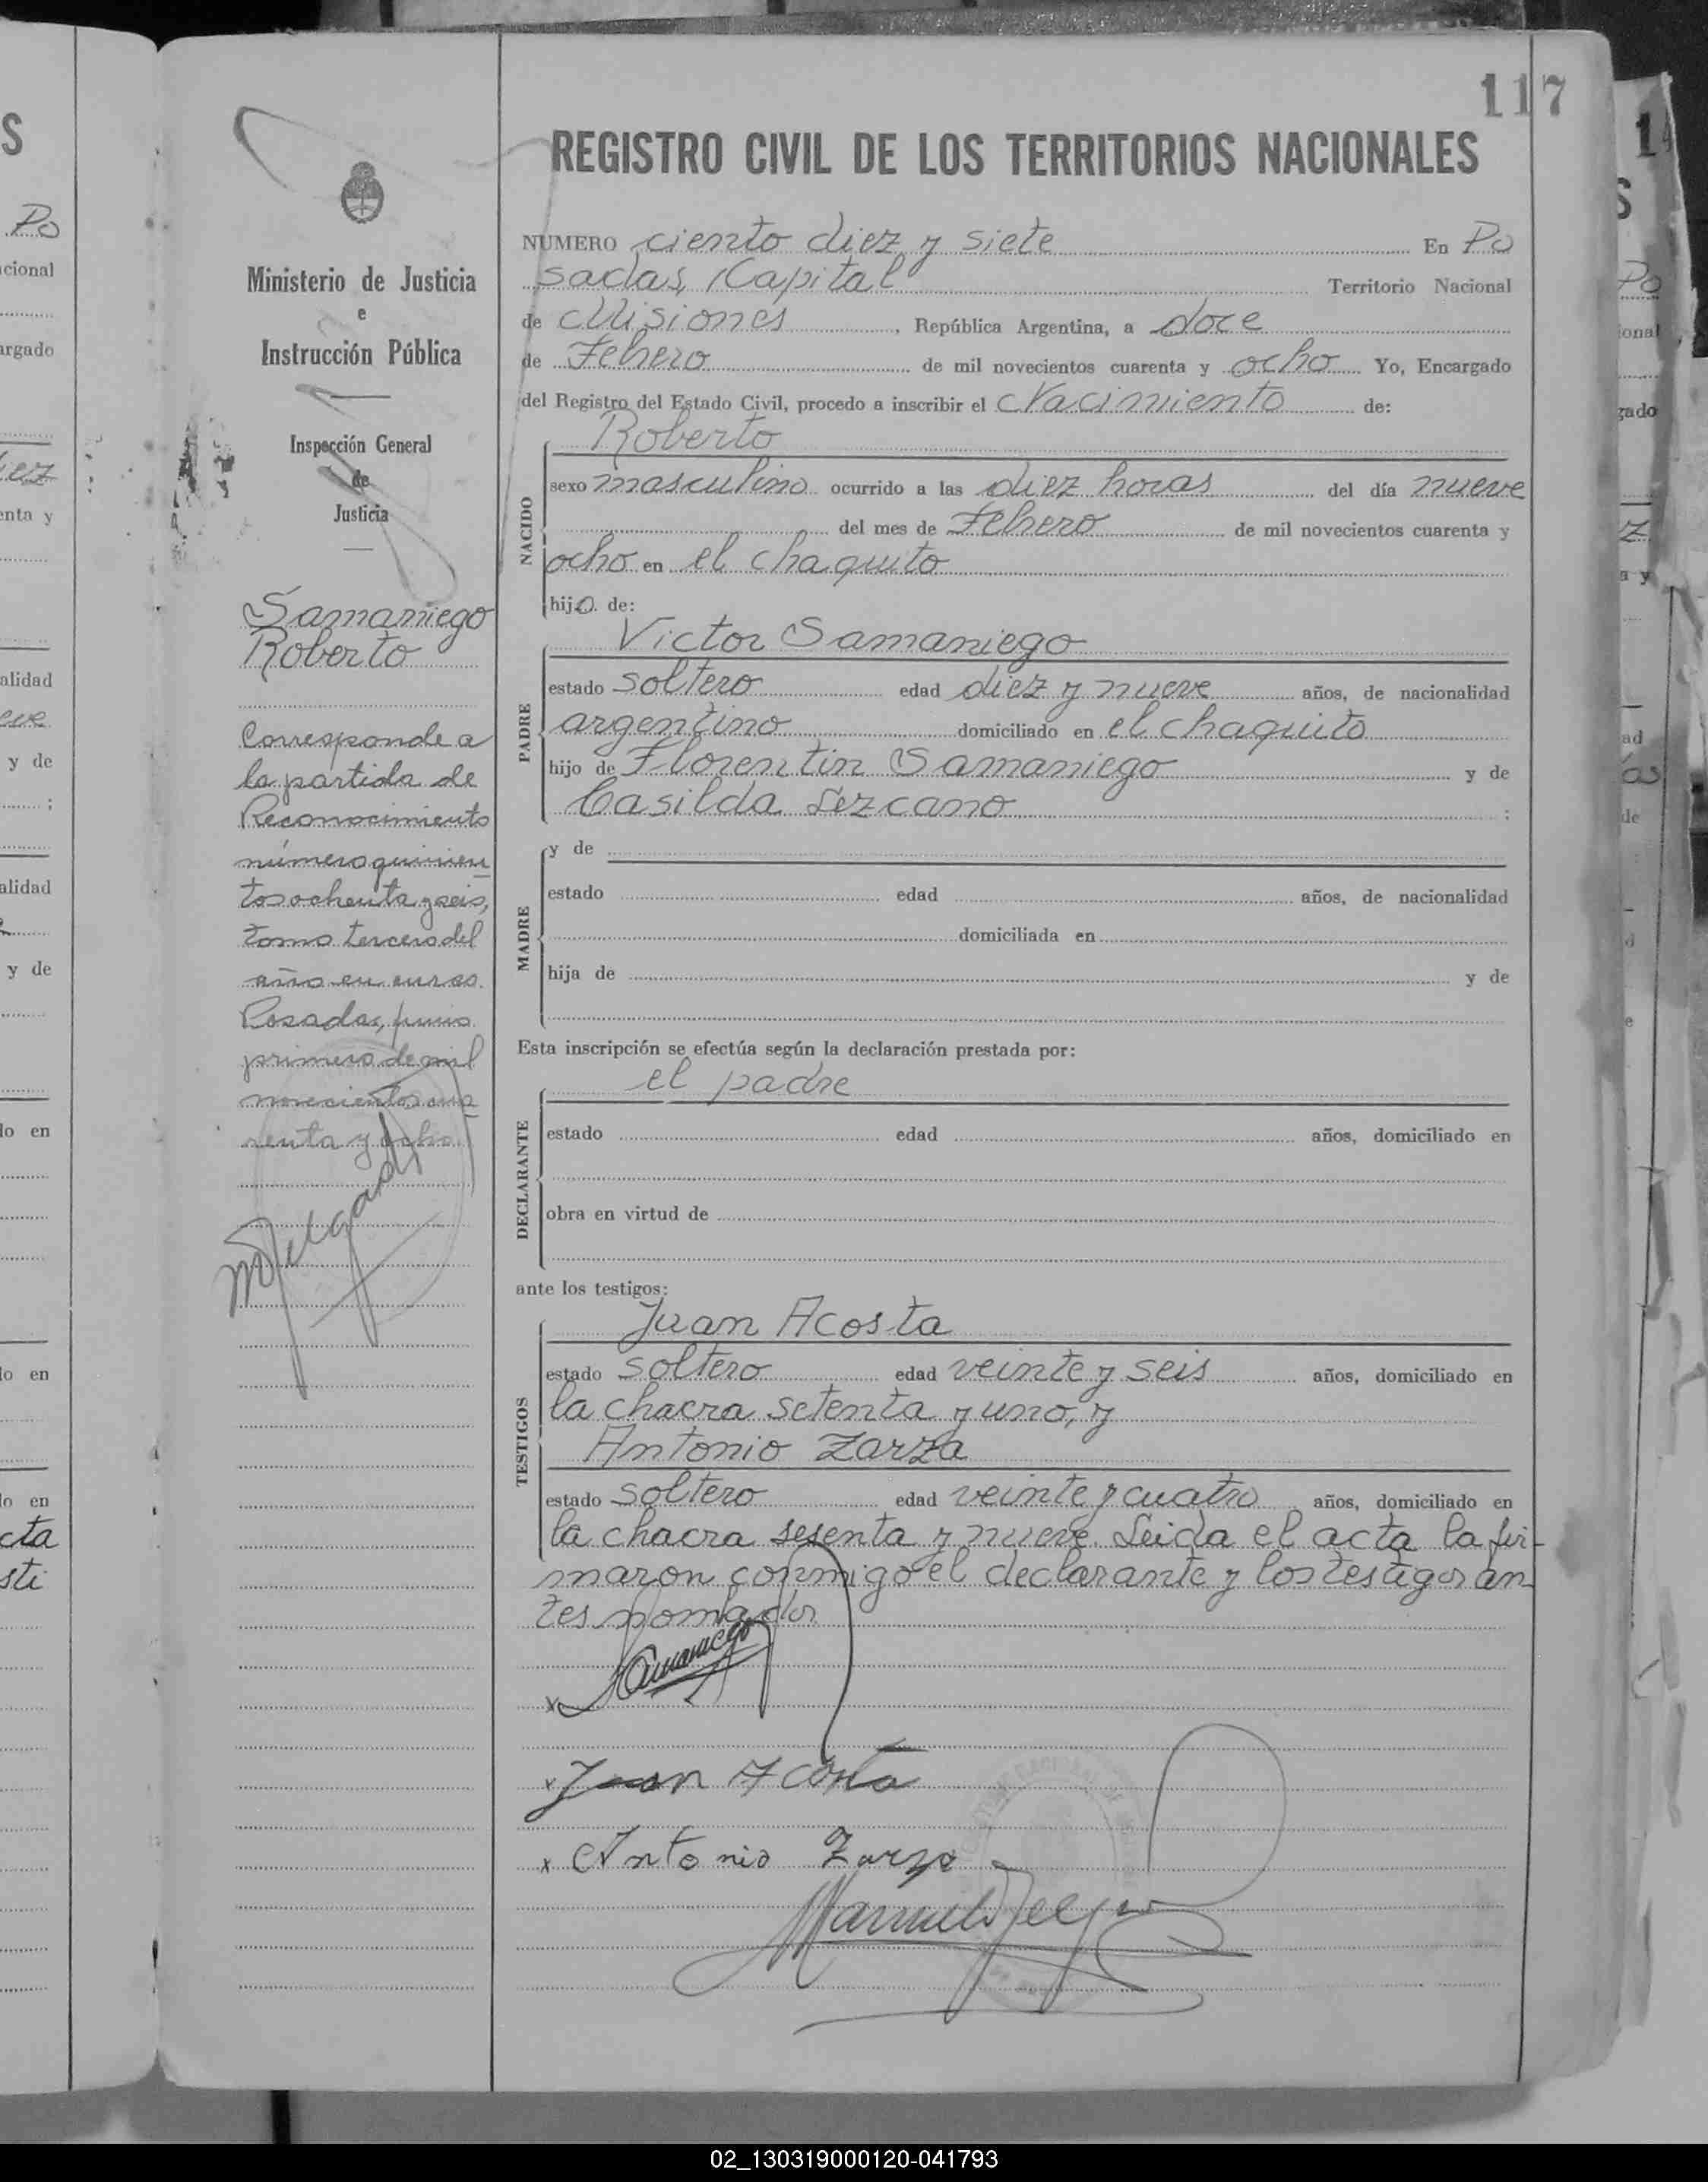 117
REGISTRO CIVIL DE LOS TERRITORIOS NACIONALES
Ministerio de Justicia
e
Instrucción Pública
Inspección General
de
Justicia
Samaniego
Roberto
Corresponde a
la partida de
Reconocimiento
número quinien
tos ochenta y seis,
tomo tercero del
año en curso.
Posadas, junio
primero de mil
novecientos cua
renta y ocho.
NUMERO ciento diez y siete En Po
sadas, Capital Territorio Nacional
de Misiones, República Argentina, a doce
de Febrero de mil novecientos cuarenta y ocho Yo, Encargado
del Registro del Estado Civil, procedo a inscribir el Nacimiento de:
NACIDO
Roberto
sexo masculino ocurrido a las diez horas del día nueve
del mes de Febrero de mil novecientos cuarenta y
ocho en el chaquito
hijo de:
PADRE
Victor Samaniego
estado soltero edad diez y nueve años, de nacionalidad
argentino domiciliado en el chaquito
hijo de Florentin Samaniego y de
Casilda Lezcano ;
MADRE
y de
estado edad años, de nacionalidad
domiciliada en
hija de y de
Esta inscripción se efectúa según la declaración prestada por:
DECLARANTE
el padre
estado edad años, domiciliado en
obra en virtud de
ante los testigos:
TESTIGOS
Juan Acosta
estado soltero edad veinte y seis años, domiciliado en
la chacra setenta y uno, y
Antonio Zarza
estado soltero edad veinte y cuatro años, domiciliado en
la chacra sesenta y nueve. Leida el acta la fir-
maron conmigo el declarante y los testigos an
tes nombrados
x Samaniego
x Juan Acosta
x Antonio Zarza
02_130319000120-041793